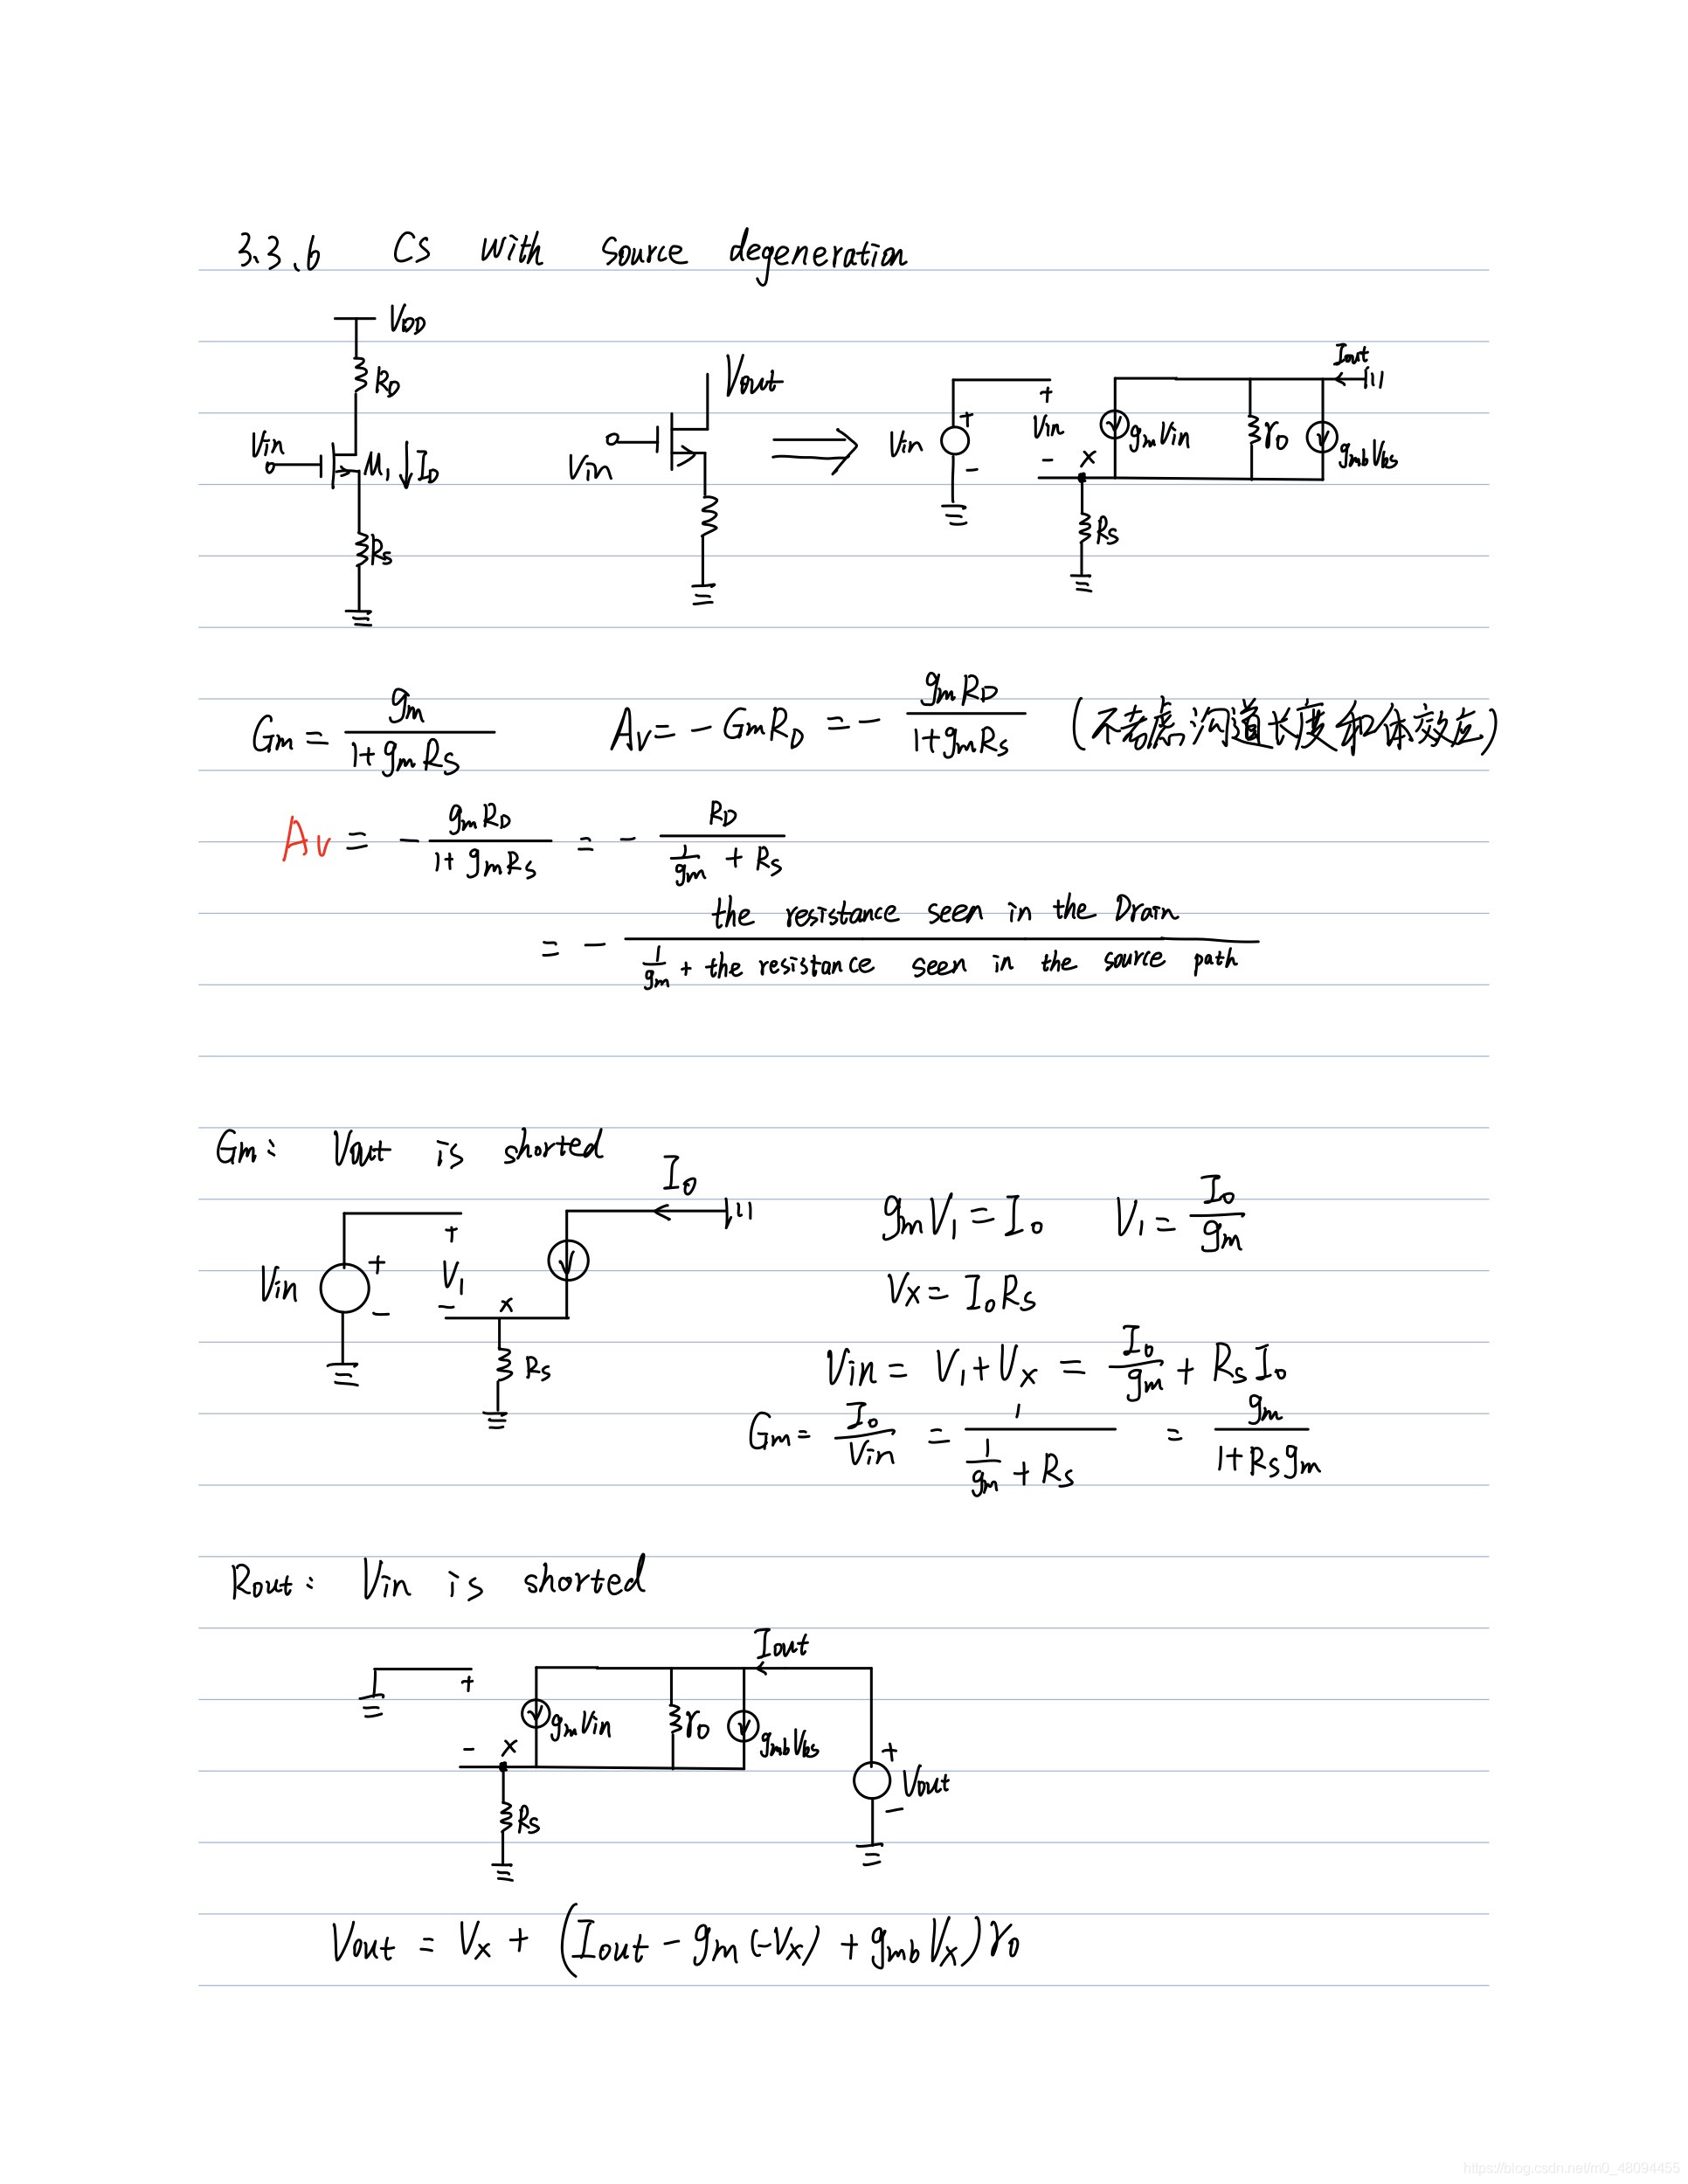 3.3.6 CS with source degeneration
VDD
RD
Vin
M1 ID
RS
Vout
Vin
Vin + -
+ Vin -
X
gmVin
rO
gmbVbs
Iout
RS
Gm = gm / (1+gmRS) Av = -GmRD = - gmRD / (1+gmRS) (不考虑沟道长度和体效应)
Av = - gmRD / (1+gmRS) = - RD / (1/gm + RS)
= - the resistance seen in the Drain / (1/gm + the resistance seen in the source path)
Gm: Vout is shorted
Vin + -
+ V1 -
X
RS
I0
gmV1 = I0 V1 = I0/gm
VX = I0RS
Vin = V1 + VX = I0/gm + RSI0
Gm = I0/Vin = 1 / (1/gm + RS) = gm / (1+RSgm)
Rout: Vin is shorted
Iout
+
- X
gmVin
rO
gmbVbs
+ Vout -
RS
Vout = VX + (Iout - gm(-VX) + gmbVX)rO
https://blog.csdn.net/m0_48094455